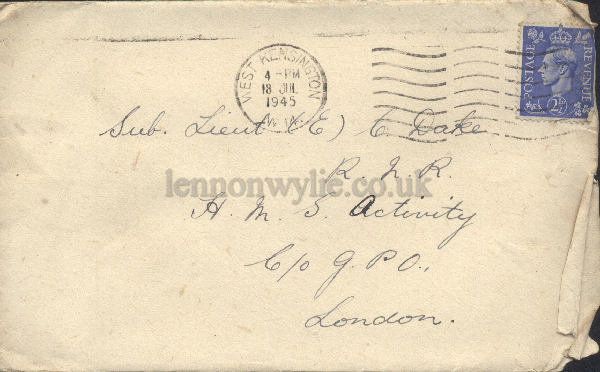 WEST KENSINGTON
4 - PM
18 JUL
1945
W. 14.
POSTAGE
REVENUE
2½D
Sub. Lieut (E) C. Dake
R. N. R.
lennonwylie.co.uk
H. M. S. Activity
C/o G. P. O.,
London.